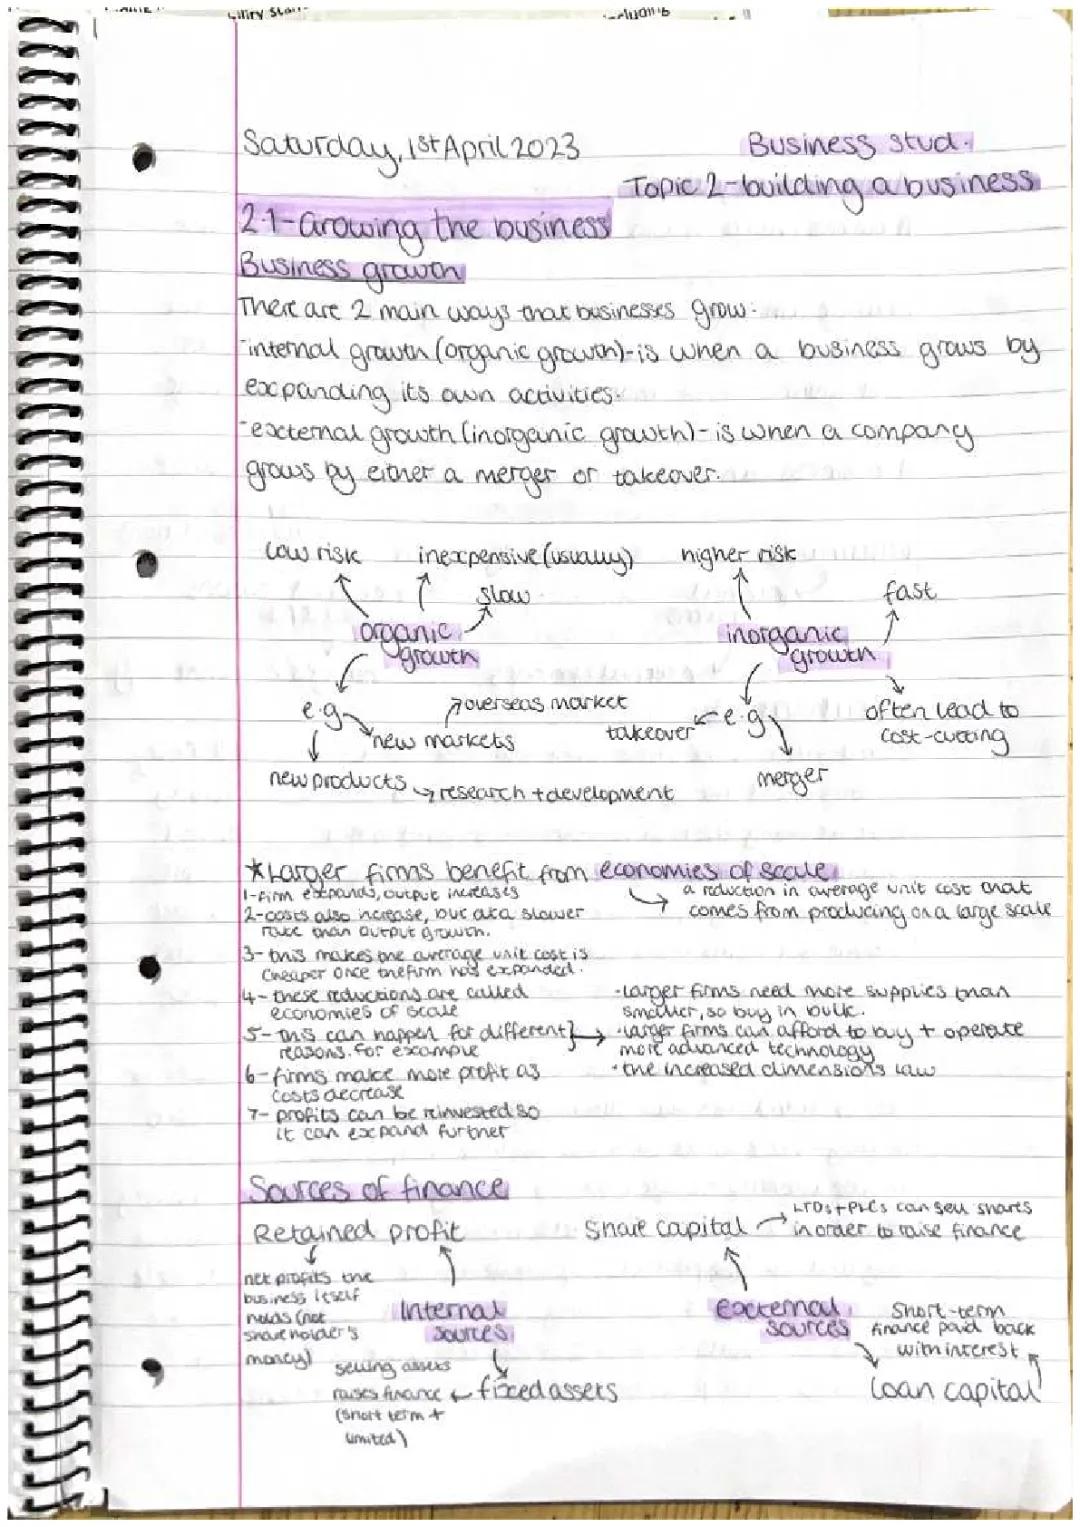 Saturday, 1st April 2023
Business stud.
Topic 2-building a business
2.1-Growing the business
Business growth
There are 2 main ways that businesses grow:
-internal growth (organic growth)-is when a business grows by
expanding its own activities.
-external growth (inorganic growth)-is when a company
grows by either a merger or takeover.
low risk inexpensive (usually) higher risk
slow fast
organic inorganic
growth growth
overseas market
e.g takeover e.g often lead to
new markets cost-cutting
new products research + development merger
*Larger firms benefit from economies of scale
1-firm expands, output increases
2-costs also increase, but at a slower
rate than output growth.
a reduction in average unit cost that
comes from producing on a large scale
3-this makes the average unit cost is
cheaper once the firm has expanded.
4-these reductions are called
economies of scale
5-This can happen for different
reasons. for example
·Larger firms need more supplies than
smaller, so buy in bulk.
·larger firms can afford to buy + operate
more advanced technology
·the increased dimensions law
6-firms make more profit as
costs decrease
7- profits can be reinvested so
it can expand further
Sources of finance
Retained profit
net profits the
business itself
holds (not
shareholder's
money)
Internal
sources
fixed assets
selling assets
raises finance
(short term +
limited)
Share capital
LTDs + PLCs can sell shares
in order to raise finance
External
sources
Short-term
finance paid back
with interest
Loan capital